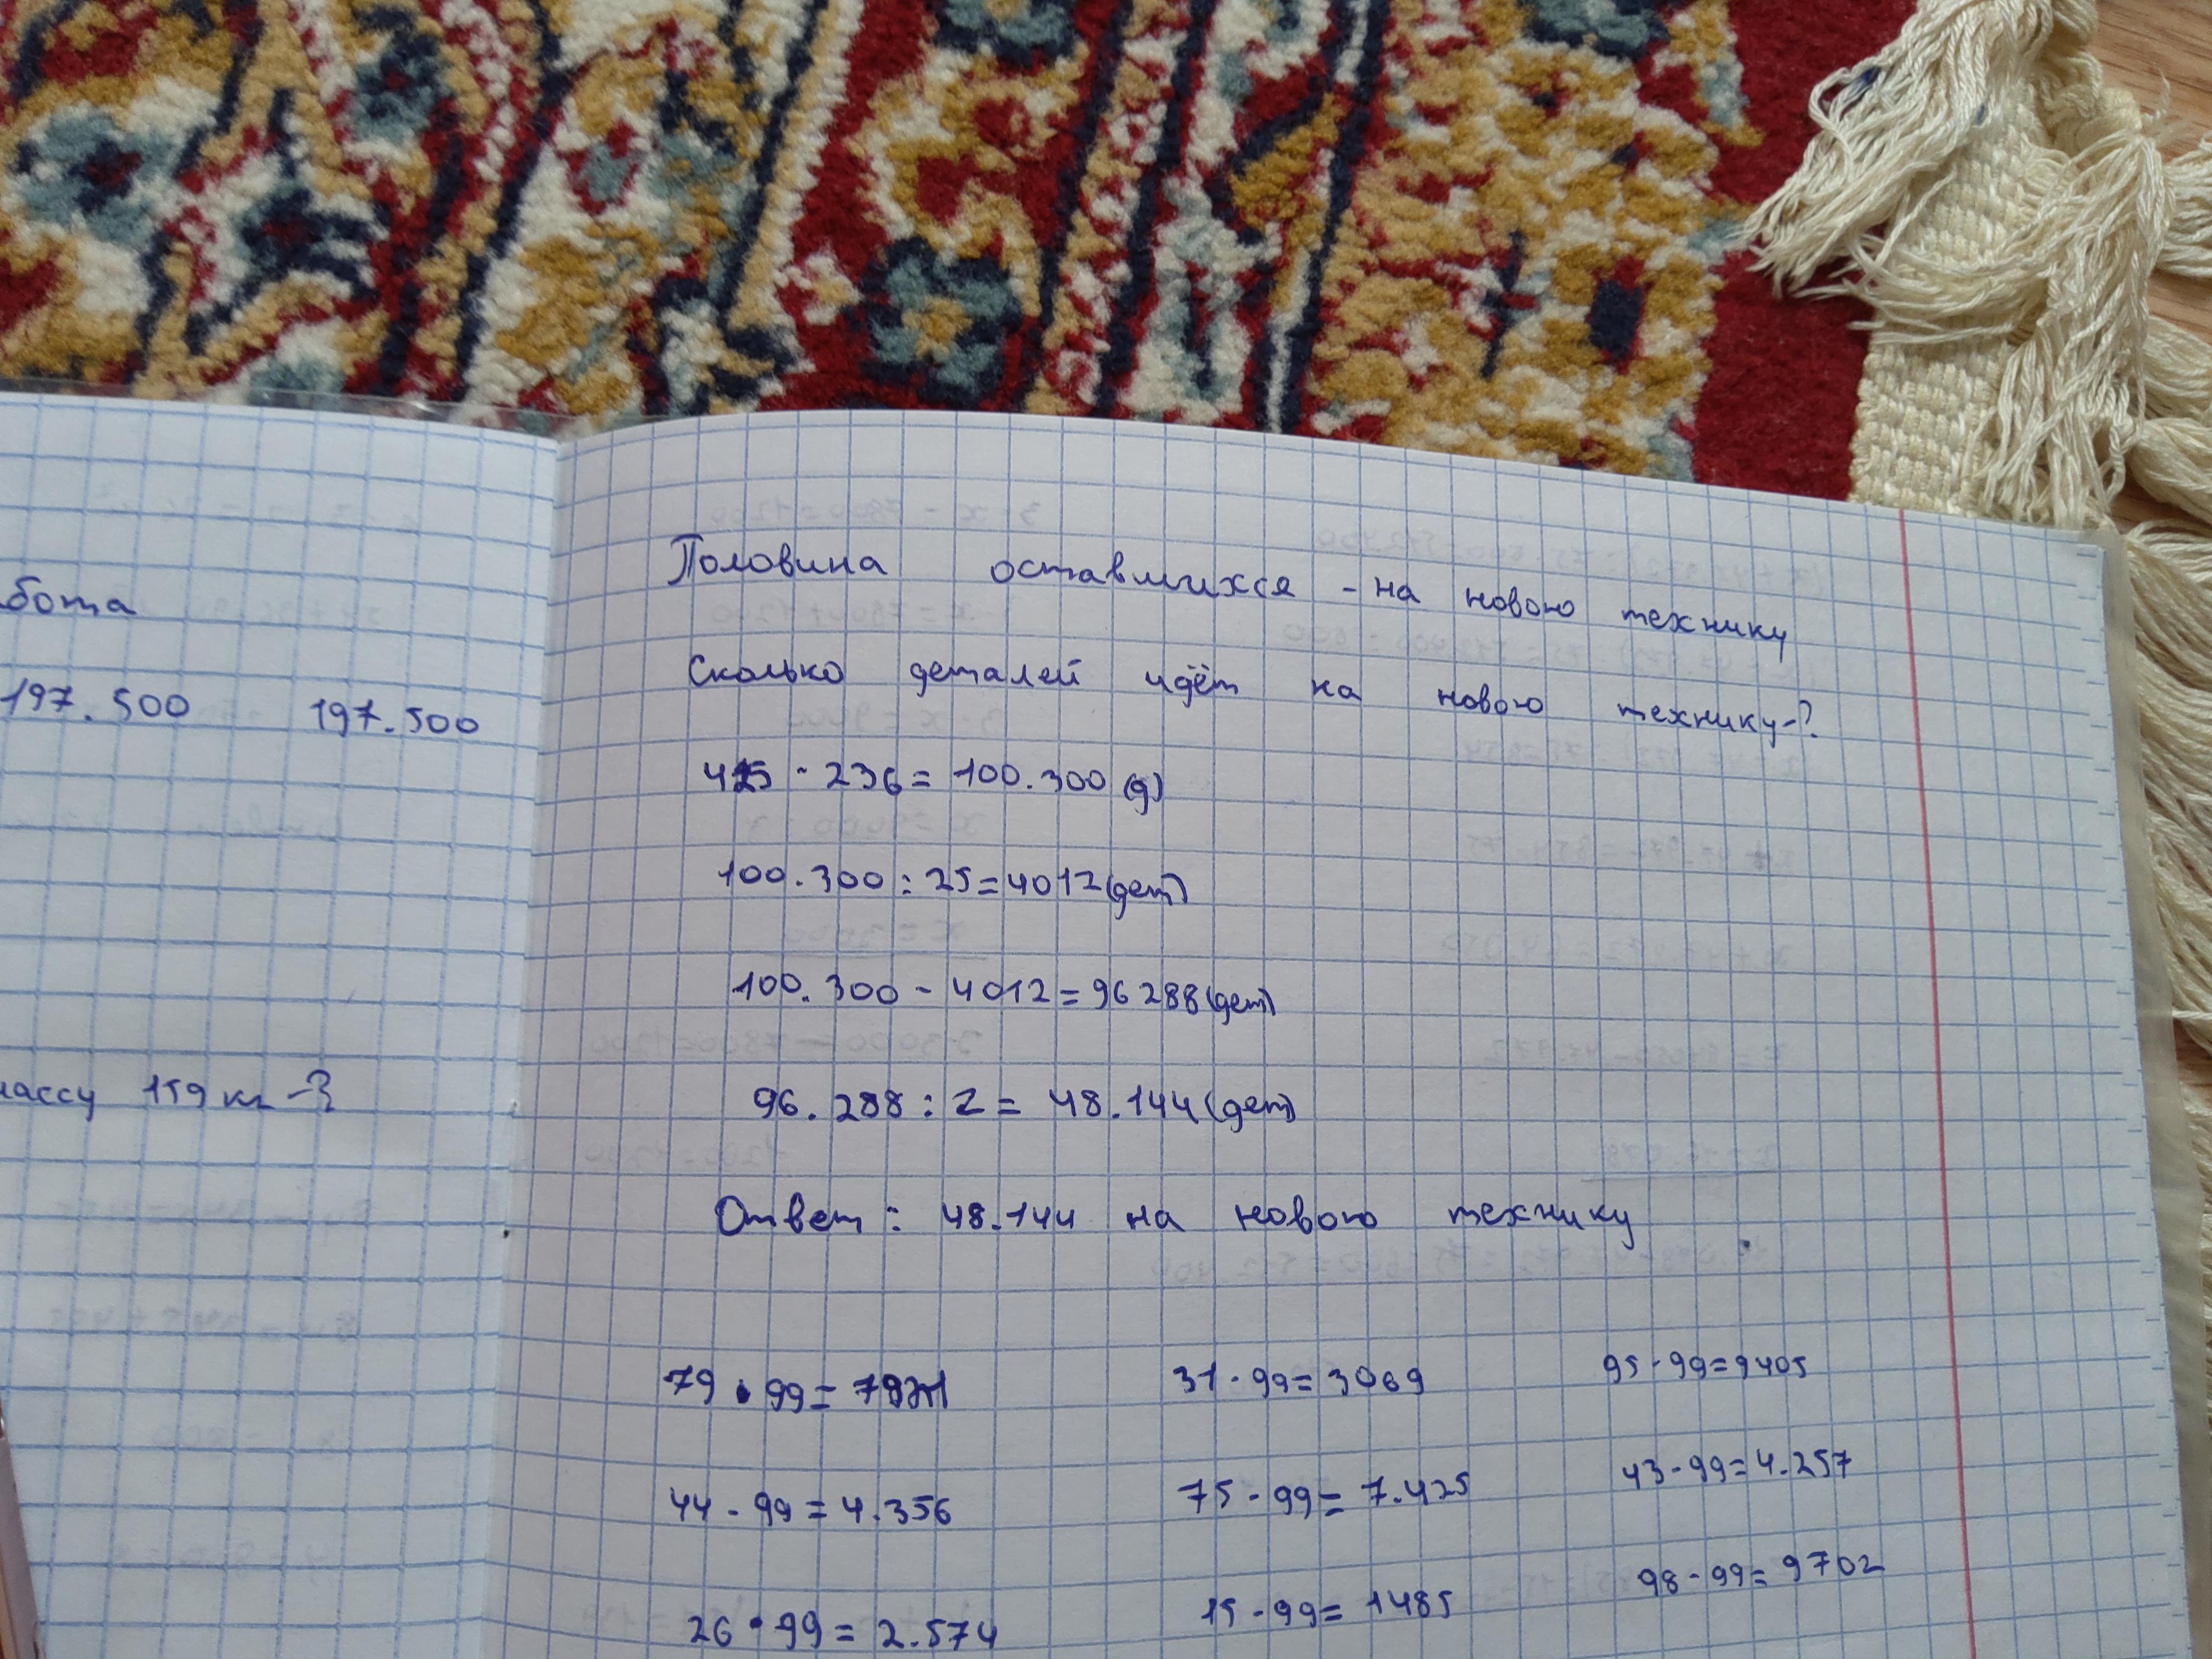 бота
197.500 197.500
массу 159 кг -?
Половина оставшихся - на новою технику
Сколько деталей идёт на новою технику-?
425 · 236 = 100.300 (д)
100.300 : 25 = 4012 (дет)
100.300 - 4012 = 96 288 (дет)
96.288 : 2 = 48.144 (дет)
Ответ: 48.144 на новою технику
79 · 99 = 31 · 99 = 3069 95 · 99 = 9405
44 · 99 = 4.356 75 · 99 = 7.425 43 · 99 = 4.257
26 · 99 = 2.574 15 · 99 = 1485 98 · 99 = 9702